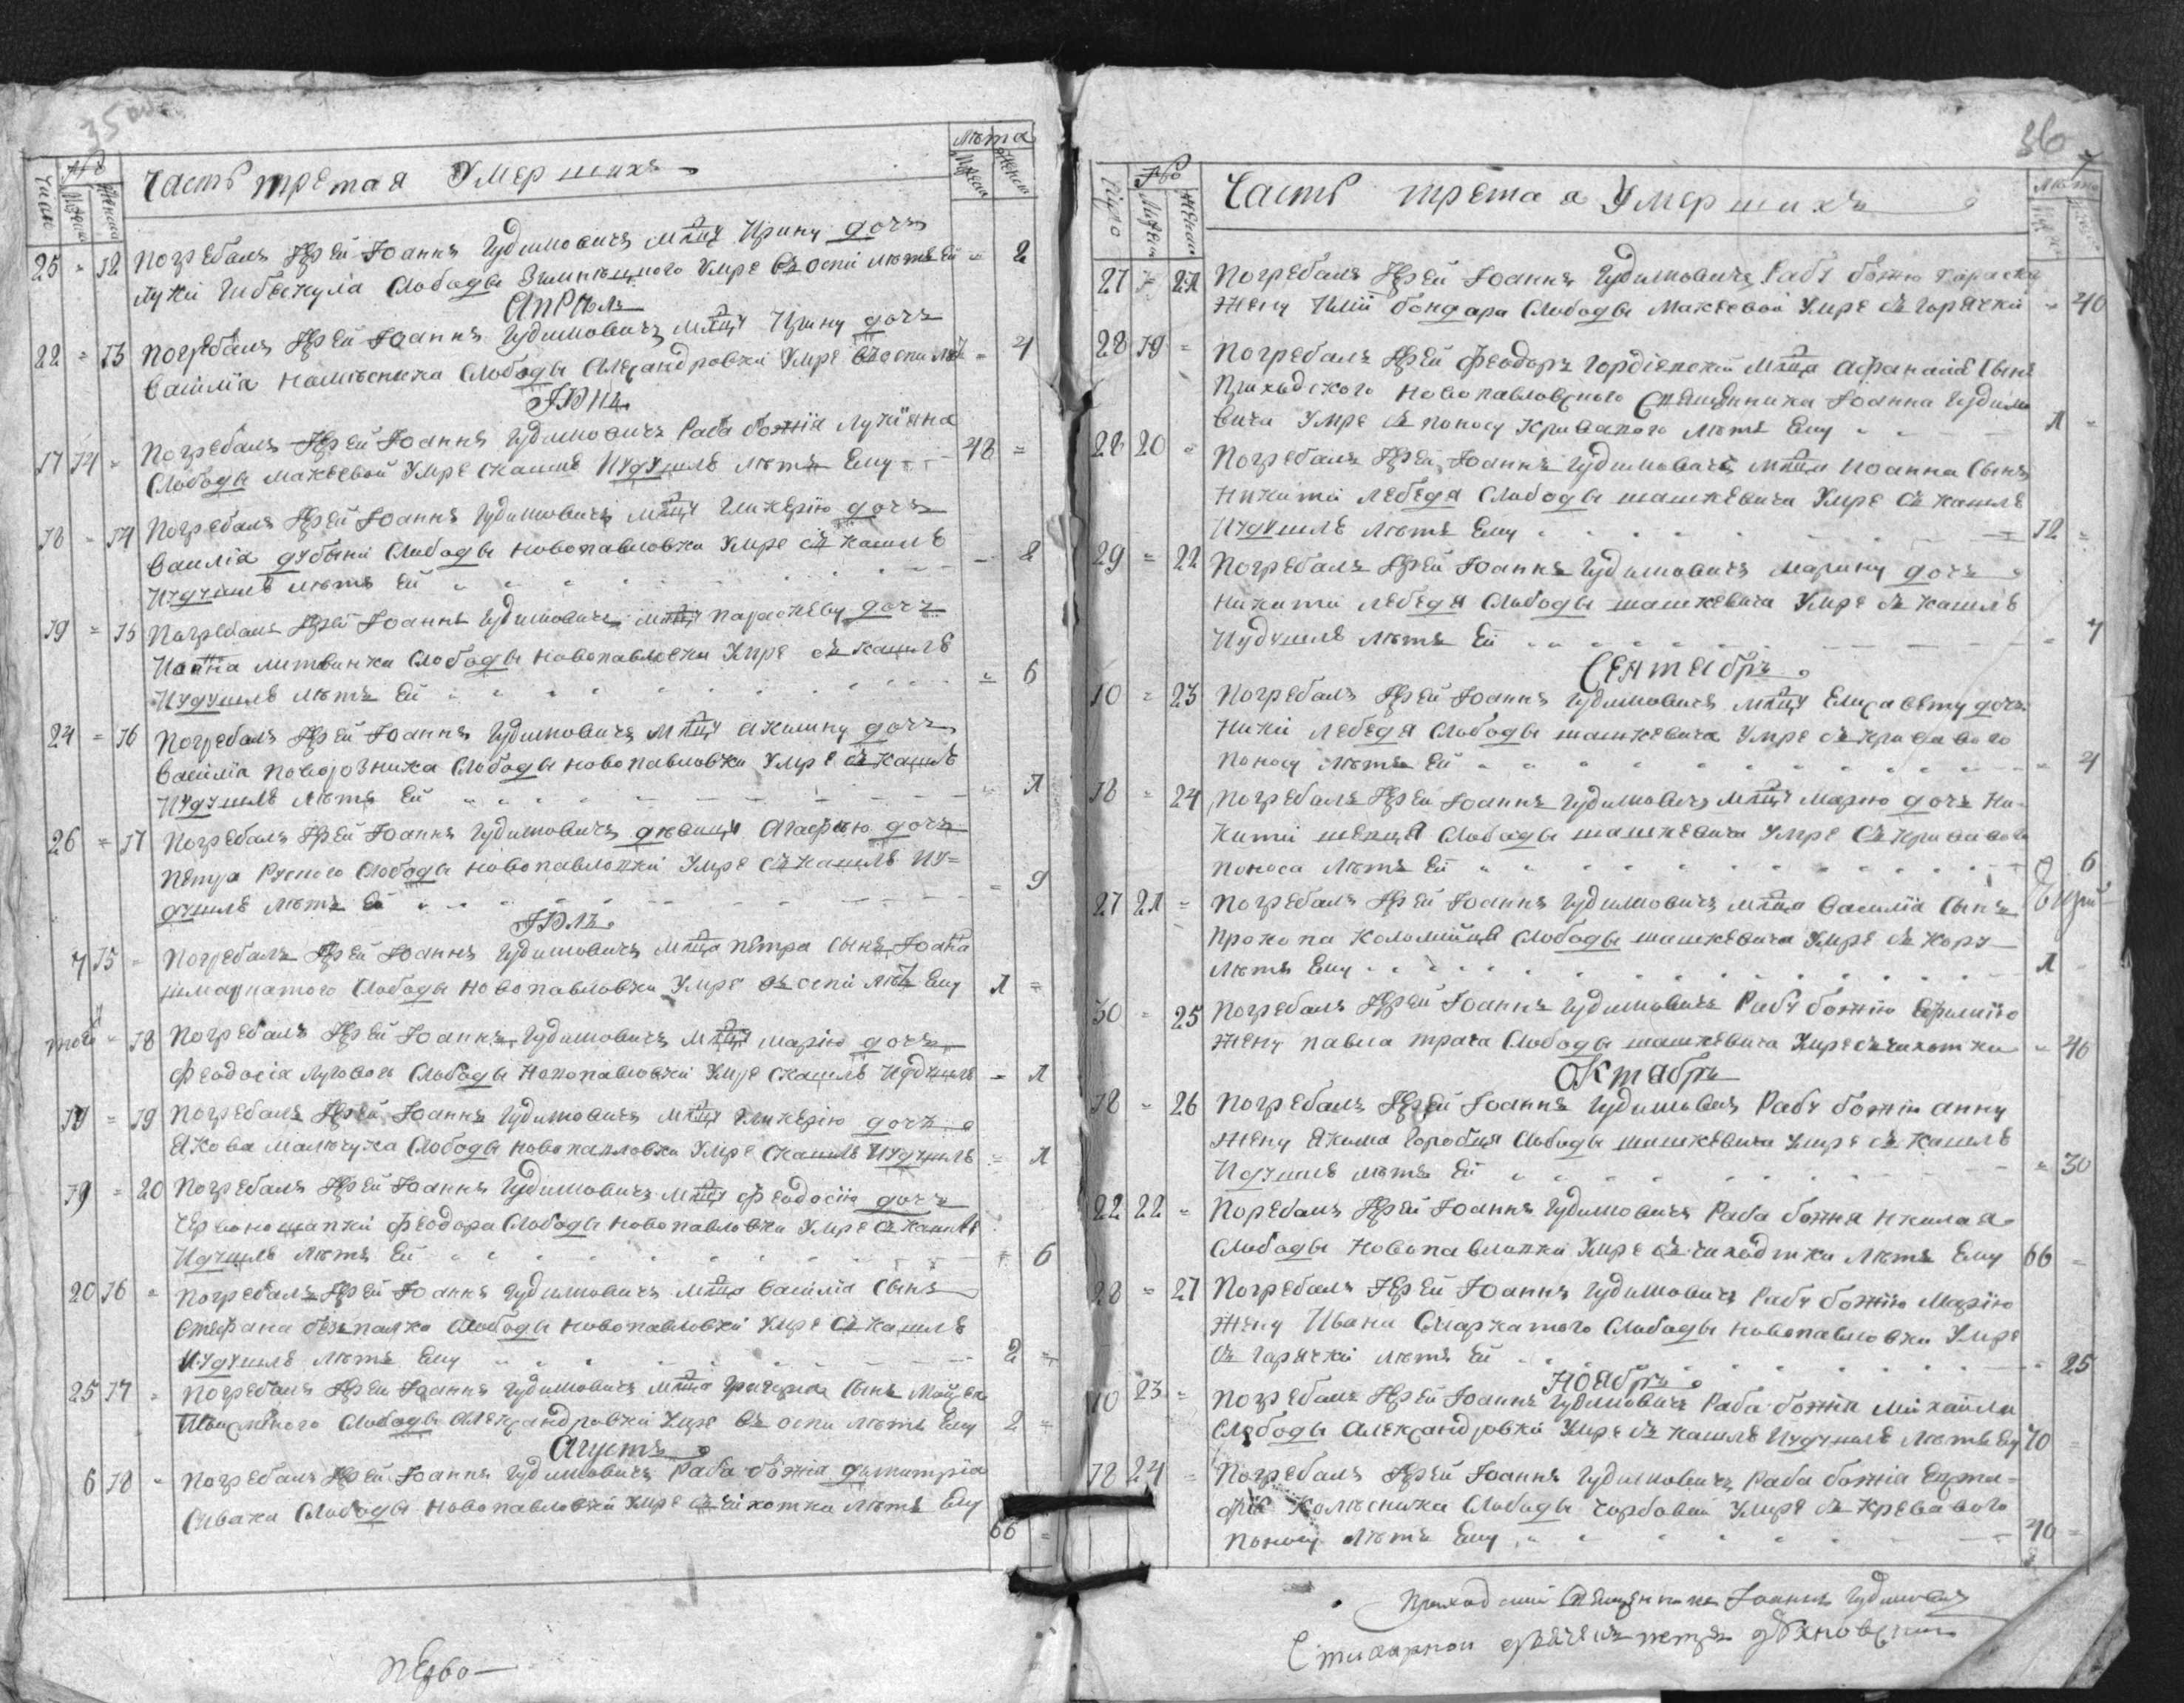 35 об
№ Лѣта
Число Мужска Женска Часть третая Умершихъ Мужеск Женск
25 = 12 Погребалъ Іерей Іоаннъ Гудимовичъ млцу Ирину дочь
Луки Слободы Умре въ оспи лѣтъ ей = 2
Апрѣль
22 = 13 Погребалъ Іерей Іоаннъ Гудимовичъ млцу Ирину дочь
Василіа Намѣсника Слободы Александровки Умре въ оспи лѣт = 4
Іюнь
17 14 = Погребалъ Іерей Іоаннъ Гудимовичъ Раба божіа Лукіяна
Слободы Макѣевой Умре скашлѣ Иудушлѣ лѣтъ Ему 48 =
18 = 14 Погребалъ Іерей Іоаннъ Гудимовичъ млцу Гликерію дочь
Василіа Дубыни Слободы Новопавловки Умре съ кашлѣ
Иудушлѣ лѣтъ Ей 2
19 = 15 Погребалъ Іерей Іоаннъ Гудимовичъ млцу Параскеву дочь
Литвинки Слободы Новопавловки Умре съ кашлѣ
Иудушлѣ лѣтъ Ей = 6
24 = 16 Погребалъ Іерей Іоаннъ Гудимовичъ млцу Акилину дочь
Василіа Поворозника Слободы Новопавловки Умре съ кашлѣ
Иудушлѣ лѣтъ Ей = 1
26 = 17 Погребалъ Іерей Іоаннъ Гудимовичъ дѣвицу Агафию дочь
Петра Руского Слободы Новопавловки Умре съ кашлѣ Иу=
душлѣ лѣтъ Ей = 9
Іюль
7 15 = Погребалъ Іерей Іоаннъ Гудимовичъ млца Петра Сынъ Іоана
Слободы Новопавловки Умре въ оспи лѣтъ Ему 1 =
того = 18 Погребалъ Іерей Іоаннъ Гудимовичъ млцу Марію дочь
Феодосіа Лугового Слободы Новопавловки Умре скашлѣ Иудушлѣ = 1
19 = 19 Погребалъ Іерей Іоаннъ Гудимовичъ млцу Гликерію дочь
Якова Слободы Новопавловки Умре скашлѣ Иудушлѣ = 1
19 = 20 Погребалъ Іерей Іоаннъ Гудимовичъ млцу Феодосію дочь
Червоношапки Феодора Слободы Новопавловки Умре съ кашлѣ
Идушлѣ лѣтъ Ей = 6
20 16 = Погребалъ Іерей Іоаннъ Гудимовичъ млца Василіа Сынъ
Стефана Безпалко Слободы Новопавловки Умре съ кашлѣ
Иудушлѣ лѣтъ Ему 2 =
25 17 = Погребалъ Іерей Іоаннъ Гудимовичъ млца Григориа Сынъ
Слободы Александровки Умре въ оспи лѣтъ Ему 2 =
Агустъ
6 18 = Погребалъ Іерей Іоаннъ Гудимовичъ Раба божіа Димитріа
Сивака Слободы Новопавловки Умре съ чихотки лѣтъ Ему
66 =
36
№ Лѣта
Число Мужеск Женск Часть третаа Умершихъ
27 = 21 Погребалъ Іерей Іоаннъ Гудимовичъ Рабу божию Параскеву
Жену Иліи Бондара Слободы Макѣевой Умре съ горячки = 40
28 19 = Погребалъ Іерей Феодоръ Гордіевский млца Афанасіа Сынъ
Приходского Новопавловского Священника Іоанна Гудимо
вича Умре съ поносу кривавого лѣтъ Ему 1 =
28 20 = Погребалъ Іерей Іоаннъ Гудимовичъ млца Иоанна Сынъ
Никити Лебедя Слободы Шашкевича Умре съ кашлѣ
Иудушлѣ лѣтъ Ему 12 =
29 = 22 Погребалъ Іерей Іоаннъ Гудимовичъ Марину дочь
Никити Лебедя Слободы Шашкевича Умре съ кашлѣ
Иудушлѣ лѣтъ Ей = 7
Сентабрь
10 = 23 Погребалъ Іерей Іоаннъ Гудимовичъ млцу Елисавету дочь
Лебедя Слободы Шашкевича Умре съ кривавого
поносу лѣтъ Ей = 4
18 = 24 Погребалъ Іерей Іоаннъ Гудимовичъ млцу Марію дочь Ни-
кити Шевця Слободы Шашкевича Умре съ кривавого
поноса лѣтъ Ей 6
27 21 = Погребалъ Іерей Іоаннъ Гудимовичъ млца Василіа Сынъ
Прокопа Коломийця Слободы Шашкевича Умре съ кору
лѣтъ Ему 1
30 = 25 Погребалъ Іерей Іоаннъ Гудимовичъ Рабу божию Ефимію
Жену Павла Ткача Слободы Шашкевича Умре съ чихотки = 46
Октабрь
18 = 26 Погребалъ Іерей Іоаннъ Гудимовичъ Рабу божію Анну
Жену Якима Горобця Слободы Шашкевича Умре съ кашлѣ
Идушлѣ лѣтъ Ей = 30
22 22 = Поребалъ Іерей Іоаннъ Гудимовичъ Раба божия Николая
Слободы Новопавловки Умре съ чиходтки лѣтъ Ему 66 =
28 = 27 Погребалъ Іерей Іоаннъ Гудимовичъ Рабу божію Марію
Жену Ивана Слободы Новопавловки Умре
съ горячки лѣтъ Ей 25
Ноабрь
10 23 = Погребалъ Іерей Іоаннъ Гудимовичъ Раба божіа Михаила
Слободы Александровки Умре съ кашлѣ Иудушлѣ лѣтъ Ему 70 =
18 24 = Погребалъ Іерей Іоаннъ Гудимовичъ Раба божіа Евста-
фіа Колѣсника Слободы Горбовой Умре съ кревавого
поносу лѣтъ Ему 70 =
Приходский Священникъ Іоаннъ Гудимовичъ
Стихарной Петръ